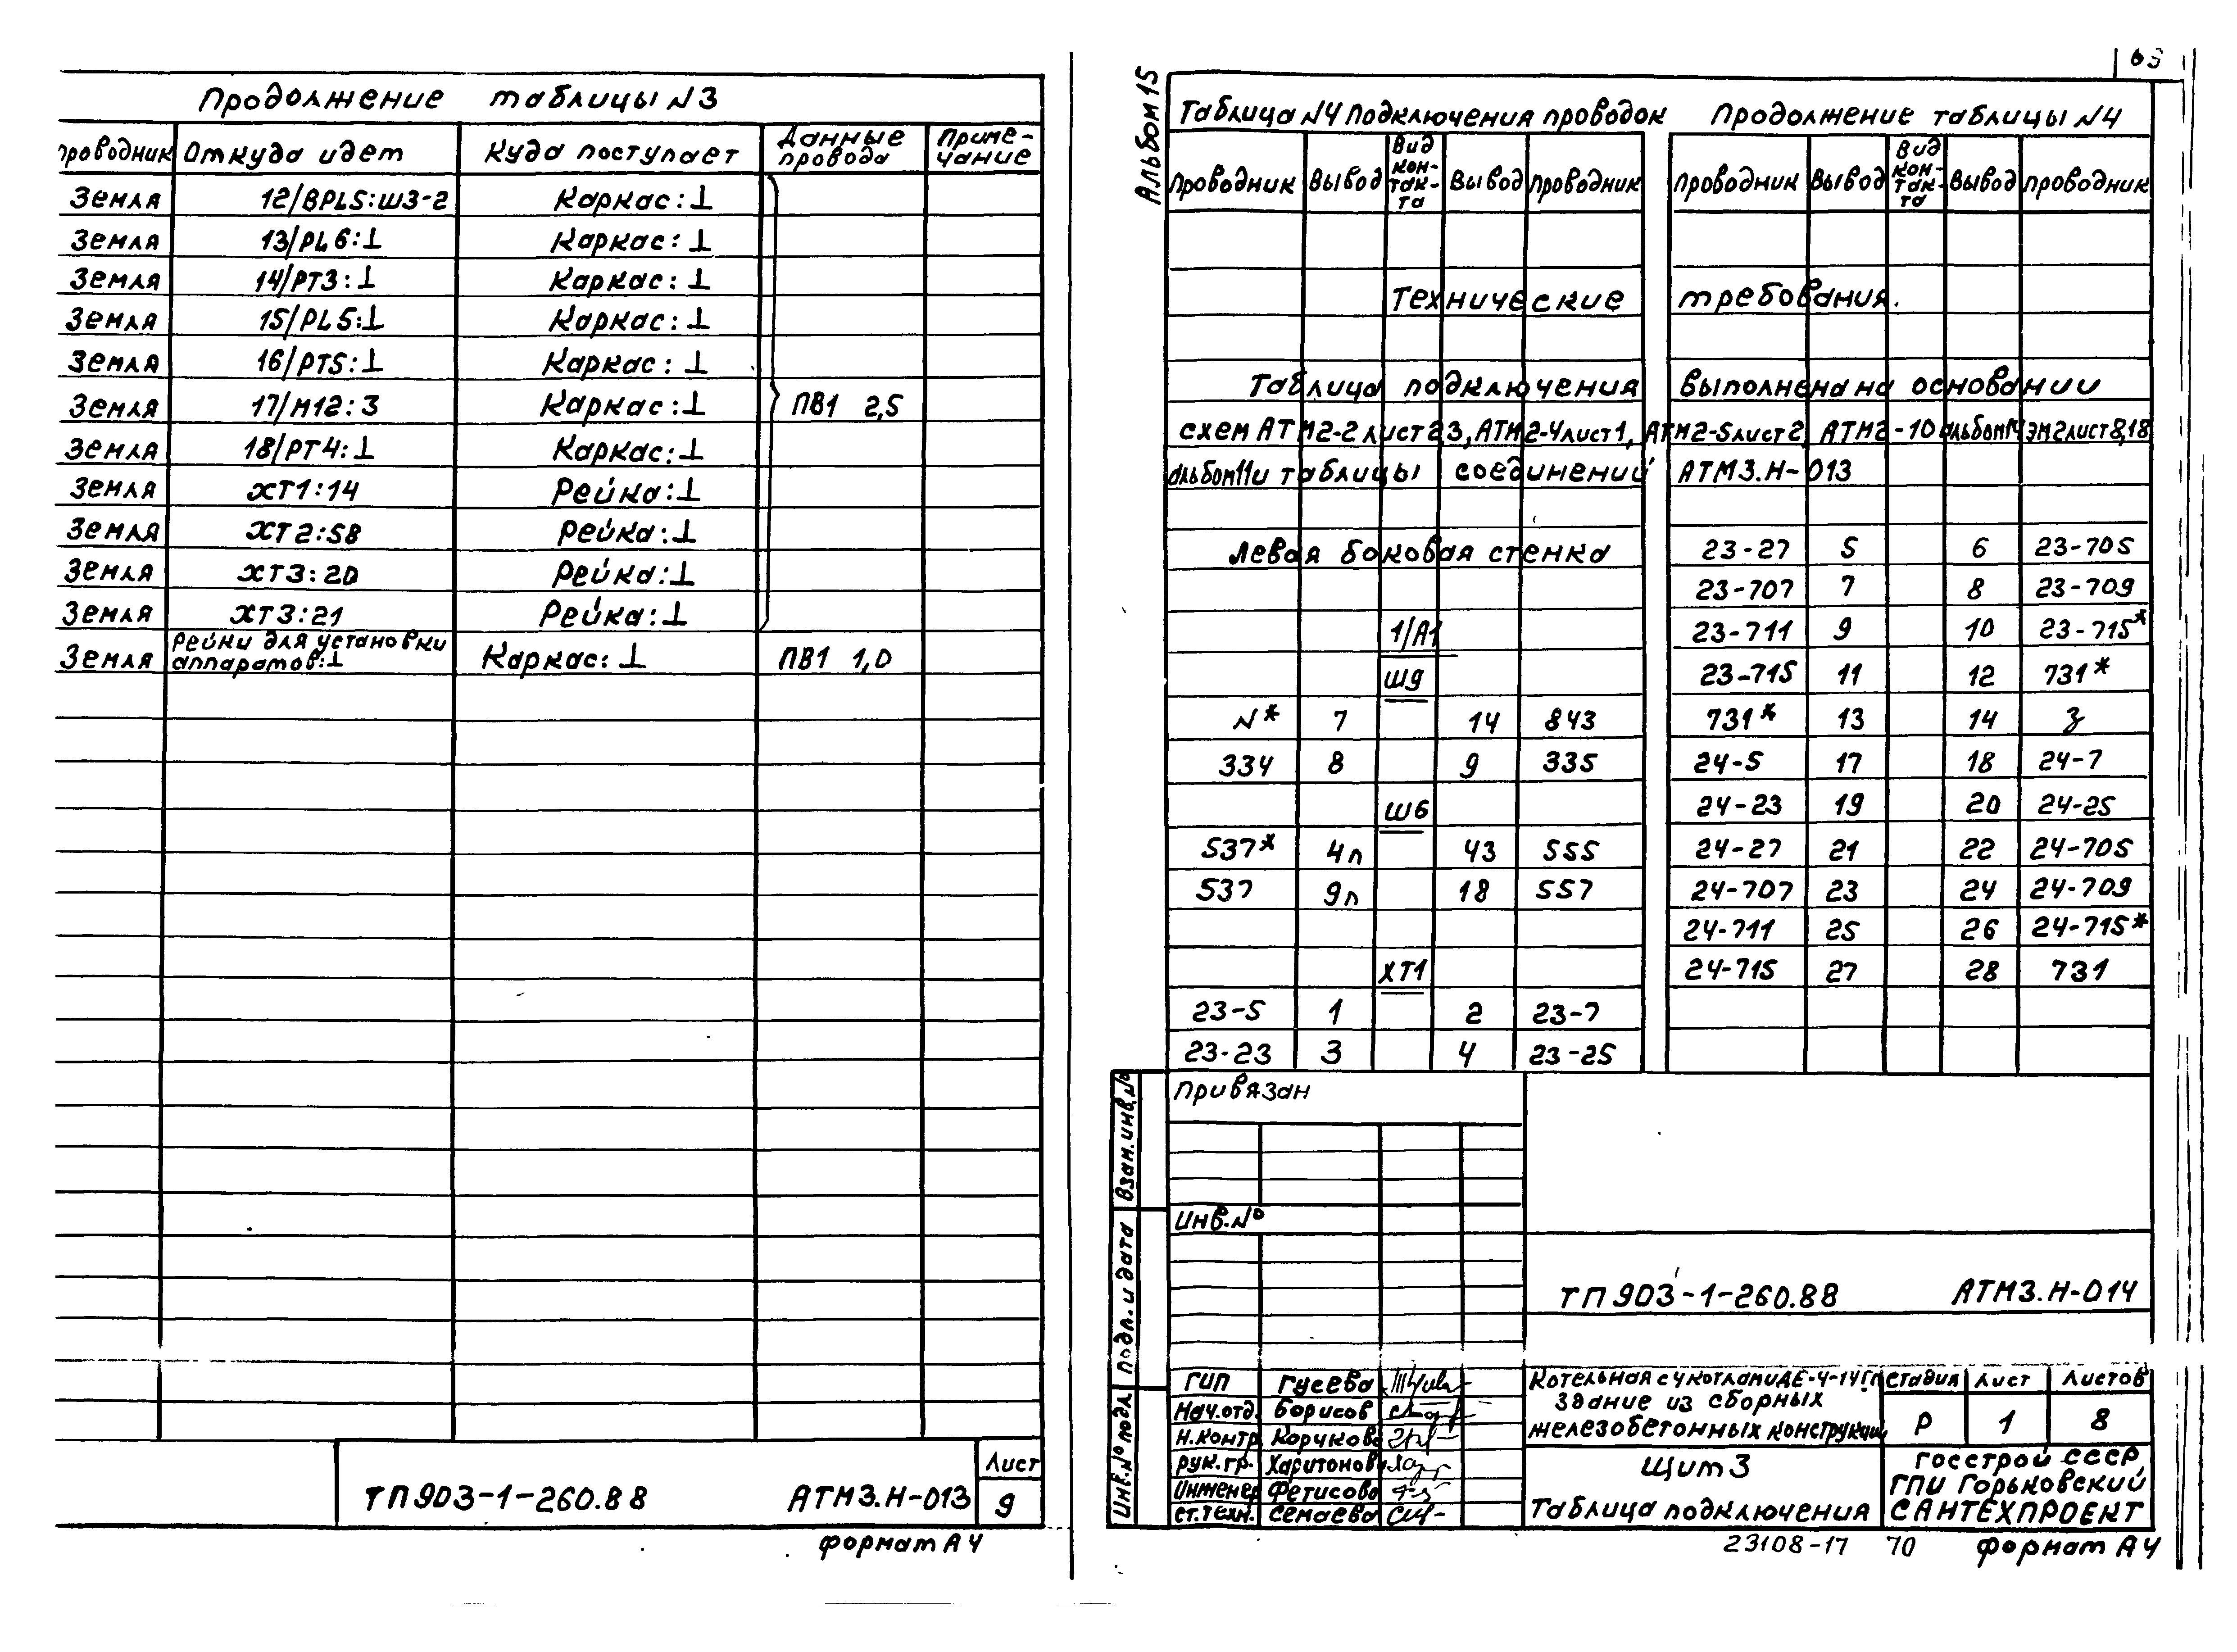 Продолжение таблицы N3
проводник Откуда идет Куда поступает Данные провода Приме-чание
Земля 12/BPL5:Ш3-2 Каркас:⊥
Земля 13/PL6:⊥ Каркас:⊥
Земля 14/PT3:⊥ Каркас:⊥
Земля 15/PL5:⊥ Каркас:⊥
Земля 16/PT5:⊥ Каркас:⊥
Земля 17/М12:3 Каркас:⊥ ПВ1 2,5
Земля 18/PT4:⊥ Каркас:⊥
Земля XT1:14 Рейка:⊥
Земля XT2:58 Рейка:⊥
Земля XT3:20 Рейка:⊥
Земля XT3:21 Рейка:⊥
Земля Рейки для установки аппаратов:⊥ Каркас:⊥ ПВ1 1,0
ТП 903-1-260.88 АТМ3.Н-013 Лист 9
формат А4
Альбом 15
Таблица N4 Подключения проводок
Проводник Вывод Вид кон-так-та Вывод проводник
Продолжение таблицы N4
проводник Вывод Вид кон-так-та Вывод проводник
Технические требования.
Таблица подключения выполнена на основании
схем АТМ2-2 лист 2,3, АТМ2-4 лист 1, АТМ2-5 лист 2, АТМ2-10 альбом 14 ЭМ2 лист 8,18
альбом 11 и таблицы соединений АТМ3.Н-013
Левая боковая стенка
1/А1
Ш9
N* 7 14 843
334 8 9 335
Ш6
537* 4п 43 555
537 9п 18 557
XT1
23-5 1 2 23-7
23-23 3 4 23-25
23-27 5 6 23-705
23-707 7 8 23-709
23-711 9 10 23-715*
23-715 11 12 731*
731* 13 14 З
24-5 17 18 24-7
24-23 19 20 24-25
24-27 21 22 24-705
24-707 23 24 24-709
24-711 25 26 24-715*
24-715 27 28 731
Привязан
Инв.№
Взам.инв.№
Подп. и дата
Инв.№ подл.
ТП 903-1-260.88 АТМ3.Н-014
ГИП Гусева
Нач.отд. Борисов
Н.контр. Корчков
рук.гр. Харитонов
Инженер Фетисова
ст.техн. Семаева
Котельная с 4 котлами ДЕ-4-14ГМ
Здание из сборных
железобетонных конструкций
стадия Лист Листов
Р 1 8
Щит 3
Таблица подключения
Госстрой СССР
ГПИ Горьковский
САНТЕХПРОЕКТ
23108-17 70 формат А4